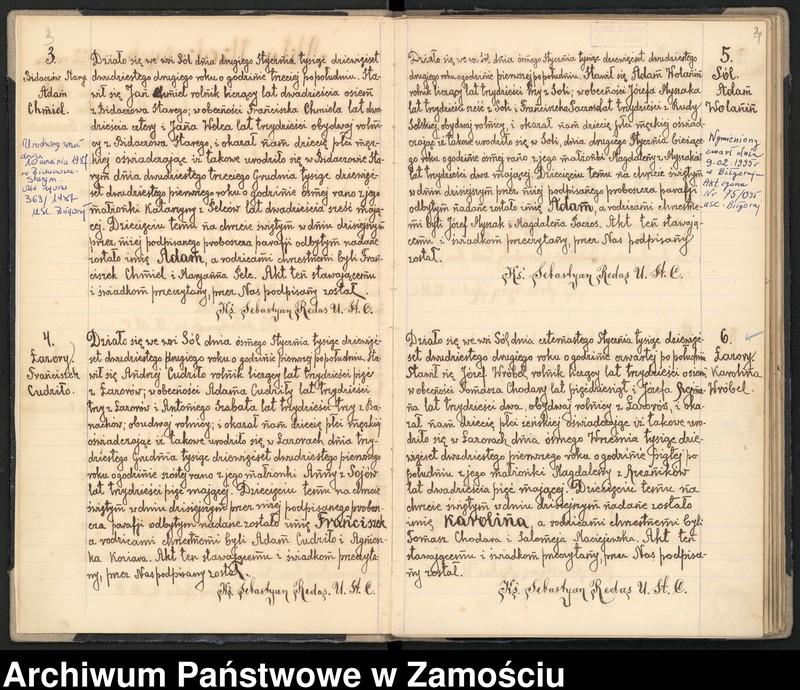 3
3.
Bidaczów Stary.
Adam
Chmiel.
Działo się we wsi Sól dnia drugiego Stycznia tysiąc dziewięćset
dwudziestego drugiego roku o godzinie trzeciej po południu. Sta-
wił się Jan Chmiel rolnik liczący lat dwadzieścia osiem
z Bidaczowa Starego; w obecności Franciszka Chmiela lat dwa-
dzieścia cztery i Jana Welca lat trzydzieści obydwaj rolni-
cy z Bidaczowa Starego, i okazał nam dziecię płci męz-
kiej oświadczając iż takowe urodziło się w Bidaczowie Sta-
rym dnia dwudziestego trzeciego Grudnia tysiąc dziewięć-
set dwudziestego pierwszego roku o godzinie ósmej rano z jego
małżonki Katarzyny z Pelców lat dwadzieścia sześć mają-
cej. Dziecięciu temu na chrzcie świętym w dniu dzisiejszym
przez niżej podpisanego proboszcza parafji odbytym nadane
zostało imię Adam, a rodzicami chrzestnemi byli Fran-
ciszek Chmiel i Maryanna Pelc. Akt ten stawającemu
i świadkom przeczytany, przez Nas podpisany został.
Ks. Sebastyan Redas U. St. C.
dnia
w Bidaczowie
Starym
Akt zgonu
363/1987
USC Biłgoraj
4.
Żarory.
Franciszek
Cudziło.
Działo się we wsi Sól dnia ósmego Stycznia tysiąc dziewięć-
set dwudziestego drugiego roku o godzinie pierwszej po południu. Sta-
wił się Andrzej Cudziło rolnik liczący lat trzydzieści pięć
z Żarorów; w obecności Adama Cudziły lat trzydzieści
trzy z Żarorów i Antoniego Szabata lat trzydzieści trzy z Ba-
nachów; obydwaj rolnicy; i okazał nam dziecię płci męzkiej
oświadczając iż takowe urodziło się w Żarorach dnia trzy-
dziestego Grudnia tysiąc dziewięćset dwudziestego pierwszego
roku o godzinie szóstej rano z jego małżonki Anny z Sojów
lat trzydzieści pięć mającej. Dziecięciu temu na chrzcie
świętym w dniu dzisiejszym przez niżej podpisanego probosz-
cza parafji odbytym nadane zostało imię Franciszek
a rodzicami chrzestnemi byli Adam Cudziło i Agniesz-
ka Koziara. Akt ten stawającemu i świadkom przeczyta-
ny, przez Nas podpisany został.
Ks. Sebastyan Redas. U. St. C.
4
5.
Sól.
Adam
Wolanin
Działo się we wsi Sól dnia ósmego Stycznia tysiąc dziewięćset dwudziestego
drugiego roku o godzinie pierwszej po południu. Stawił się Adam Wolanin
rolnik liczący lat trzydzieści trzy z Soli; w obecności Józefa Myszaka
lat trzydzieści sześć z Soli i Franciszka lat trzydzieści z Rudy
Solskiej, obydwaj rolnicy, i okazał nam dziecię płci męzkiej oświad-
czając iż takowe urodziło się w Soli, dnia drugiego Stycznia bieżące-
go roku o godzinie ósmej rano z jego małżonki Magdaleny z Myszaków
lat trzydzieści dwa mającej. Dziecięciu temu na chrzcie świętym
w dniu dzisiejszym przez niżej podpisanego proboszcza parafji
odbytym nadane zostało imię Adam, a rodzicami chrzestne-
mi byli Józef Myszak i Magdalena. Akt ten stawają-
cemu i świadkom przeczytany, przez Nas podpisany
został.
Ks. Sebastyan Redas U. St. C.
Wymieniony
zmarł dnia
9.02.1995r
w Biłgoraju
Akt zgonu
Nr 75/095
USC - Biłgoraj
6.
Żarory.
Karolina
Wróbel.
Działo się we wsi Sól dnia czternastego Stycznia tysiąc dziewięć-
set dwudziestego drugiego roku o godzinie czwartej po południu
Stawił się Józef Wróbel rolnik liczący lat trzydzieści osiem
w obecności Tomasza Chodary lat pięćdziesiąt i Józefa
na lat trzydzieści dwa, obydwaj rolnicy z Żarorów, i oka-
zał nam dziecię płci żeńskiej oświadczając iż takowe uro-
dziło się w Żarorach dnia ósmego Września tysiąc dzie-
więćset dwudziestego pierwszego roku o godzinie piątej po
południu z jego małżonki Magdaleny z Rzeźników
lat dwadzieścia pięć mającej. Dziecięciu temu na
chrzcie świętym w dniu dzisiejszym nadane zostało
imię Karolina, a rodzicami chrzestnemi byli
Tomasz Chodara i Salomeja Maciejewska. Akt ten
stawającemu i świadkom przeczytany, przez Nas podpisa-
ny został.
Ks. Sebastyan Redas U. St. C.
Archiwum Państwowe w Zamościu